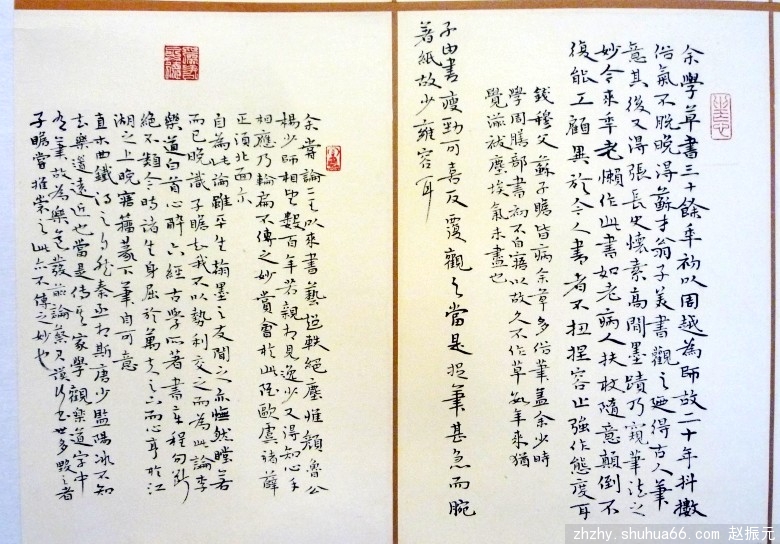 余學草書三十餘年初以周越為師故二十年抖擻
俗氣不脫晚得蘇才翁子美書觀之迺得古人筆
意其後又得張長史懷素高閒墨蹟乃窺筆法之
妙今來年老懶作此書如老病人扶杖隨意顛倒不
復能工顧異於今人書者不扭捏容止強作態度耳
錢穆父蘇子瞻皆病余草多俗筆蓋余少時
學周膳部書初不自寤以故久不作草數年來猶
覺滋祓塵埃氣未盡也
子由書瘦勁可喜反覆觀之當是捉筆甚急而腕
著紙故少雍容耳
余嘗論二王以來書藝超軼絕塵惟顏魯公
楊少師相望數百年若親見逸少又得知心手
相應乃輪扁不傳之妙賞會於此雖歐虞褚薛
正須北面爾
自為此論雖平生翰墨之友聞之亦憮然瞠若
而已晚識子瞻 我不以勢利交之而為此論李
樂道白首心醉六經古學所著書章程句斷
絕不類今時諸生身屈於萬夫之下而心亨於江
湖之上晚寤籀篆下筆自可意
直木曲鐵得之自然秦丞相斯唐少監陽冰不知
去樂道遠近也當是傳其家學觀樂道字中
有筆故為樂道發前論蔡君謨行書世多毀之者
子瞻嘗推崇之此亦不傳之妙也
zhzhy.shuhua66.com 赵振元